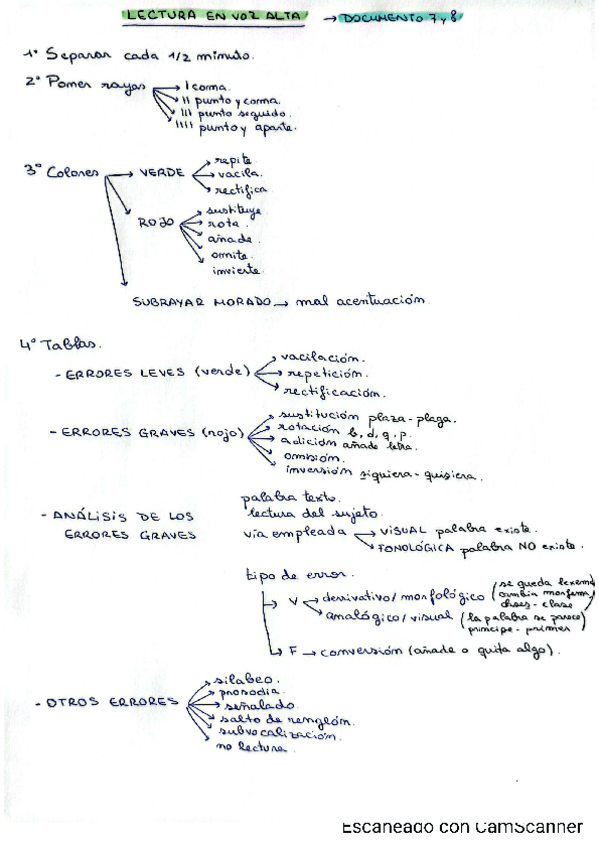 LECTURA EN VOZ ALTA → DOCUMENTO 7 y 8
1º Separar cada 1/2 minuto.
2º Poner rayas → I coma.
II punto y coma.
III punto seguido.
IIII punto y aparte.
3º Colores → VERDE → repite.
vacila.
rectifica
ROJO → sustituye
rota.
añade.
omite.
invierte.
SUBRAYAR MORADO → mal acentuación
4º Tablas.
- ERRORES LEVES (verde) → vacilación.
repetición.
rectificación.
- ERRORES GRAVES (rojo) → sustitución plaza - plaga.
rotación b, d, q, p.
adición añade letra.
omisión.
inversión siquiera - quisiera.
- ANÁLISIS DE LOS ERRORES GRAVES
palabra texto.
lectura del sujeto.
vía empleada → VISUAL palabra existe.
FONOLÓGICA palabra NO existe.
tipo de error.
V → derivativo/morfológico (se queda lexema
cambia morfema
clases - clase
analógico/visual (la palabra se parece)
príncipe - primer
F → conversión (añade o quita algo).
- OTROS ERRORES → silabeo.
prosodia.
señalado.
salto de renglón.
subvocalización.
no lectura.
Escaneado con CamScanner